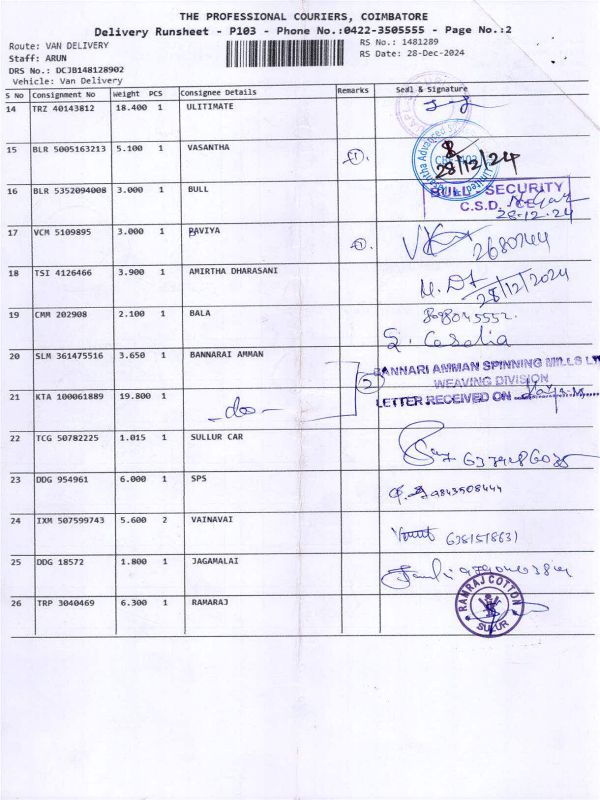 THE PROFESSIONAL COURIERS, COIMBATORE
Delivery Runsheet - P103 - Phone No.:0422-3505555 - Page No.:2
Route: VAN DELIVERY RS No.: 1481289
Staff: ARUN RS Date: 28-Dec-2024
DRS No.: DCJB148128902
Vehicle: Van Delivery
S No Consignment No Weight PCS Consignee Details Remarks Seal & Signature
14 TRZ 40143812 18.400 1 ULITIMATE
15 BLR 5005163213 5.100 1 VASANTHA 1. 28/12/24
16 BLR 5352094008 3.000 1 BULL BULL SECURITY
C.S.D.
28-12-24
17 VCM 5109895 3.000 1 PAVIYA 1. 2680744
18 TSI 4126466 3.900 1 AMIRTHA DHARASANI 28/12/2024
19 CMM 202908 2.100 1 BALA
20 SLM 361475516 3.650 1 BANNARAI AMMAN 2 BANNARI AMMAN SPINNING MILLS LT
WEAVING DIVISION
21 KTA 100061889 19.800 1 -do- LETTER RECEIVED ON
22 TCG 50782225 1.015 1 SULLUR CAR
23 DDG 954961 6.000 1 SPS 9843508444
24 IXM 507599743 5.600 2 VAINAVAI
25 DDG 18572 1.800 1 JAGAMALAI
26 TRP 3040469 6.300 1 RAMARAJ RAMRAJ COTTON
SULUR